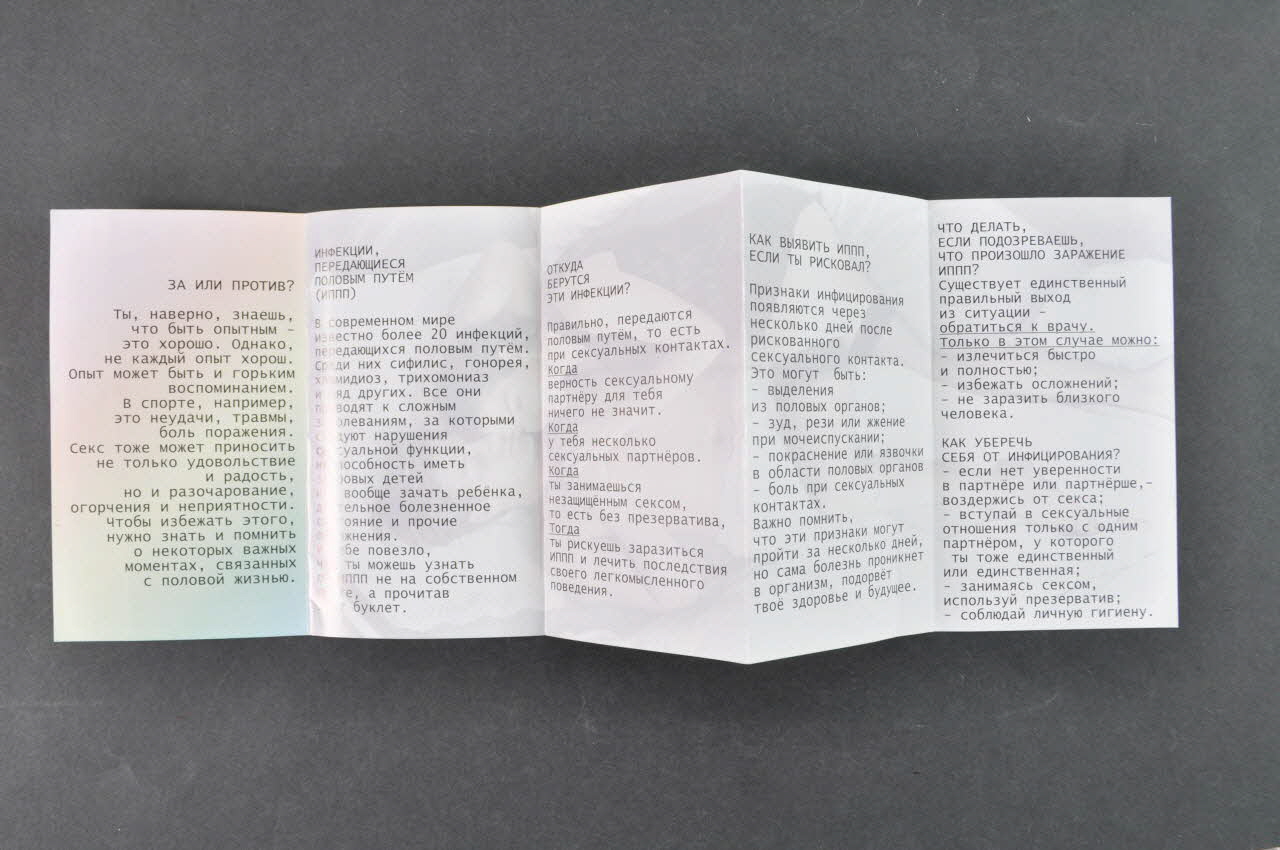 ЗА ИЛИ ПРОТИВ?
Ты, наверно, знаешь,
что быть опытным –
это хорошо. Однако,
не каждый опыт хорош.
Опыт может быть и горьким
воспоминанием.
В спорте, например,
это неудачи, травмы,
боль поражения.
Секс тоже может приносить
не только удовольствие
и радость,
но и разочарование,
огорчения и неприятности.
Чтобы избежать этого,
нужно знать и помнить
о некоторых важных
моментах, связанных
с половой жизнью.
ИНФЕКЦИИ,
ПЕРЕДАЮЩИЕСЯ
ПОЛОВЫМ ПУТЁМ
(ИППП)
В современном мире
известно более 20 инфекций,
передающихся половым путём.
Среди них сифилис, гонорея,
хламидиоз, трихомониаз
и ряд других. Все они
приводят к сложным
заболеваниям, за которыми
следуют нарушения
сексуальной функции,
неспособность иметь
здоровых детей
вообще зачать ребёнка,
длительное болезненное
состояние и прочие
осложнения.
повезло,
ты можешь узнать
ИППП не на собственном
а прочитав
буклет.
ОТКУДА
БЕРУТСЯ
ЭТИ ИНФЕКЦИИ?
Правильно, передаются
половым путём, то есть
при сексуальных контактах.
когда
верность сексуальному
партнёру для тебя
ничего не значит.
Когда
у тебя несколько
сексуальных партнёров.
Когда
ты занимаешься
незащищённым сексом,
то есть без презерватива,
Тогда
ты рискуешь заразиться
ИППП и лечить последствия
своего легкомысленного
поведения.
КАК ВЫЯВИТЬ ИППП,
ЕСЛИ ТЫ РИСКОВАЛ?
Признаки инфицирования
появляются через
несколько дней после
рискованного
сексуального контакта.
Это могут быть:
– выделения
из половых органов;
– зуд, рези или жжение
при мочеиспускании;
– покраснение или язвочки
в области половых органов
– боль при сексуальных
контактах.
Важно помнить,
что эти признаки могут
пройти за несколько дней,
но сама болезнь проникнет
в организм, подорвёт
твоё здоровье и будущее.
ЧТО ДЕЛАТЬ,
ЕСЛИ ПОДОЗРЕВАЕШЬ,
ЧТО ПРОИЗОШЛО ЗАРАЖЕНИЕ
ИППП?
Существует единственный
правильный выход
из ситуации –
обратиться к врачу.
Только в этом случае можно:
– излечиться быстро
и полностью;
– избежать осложнений;
– не заразить близкого
человека.
КАК УБЕРЕЧЬ
СЕБЯ ОТ ИНФИЦИРОВАНИЯ?
– если нет уверенности
в партнёре или партнёрше,–
воздержись от секса;
– вступай в сексуальные
отношения только с одним
партнёром, у которого
ты тоже единственный
или единственная;
– занимаясь сексом,
используй презерватив;
– соблюдай личную гигиену.